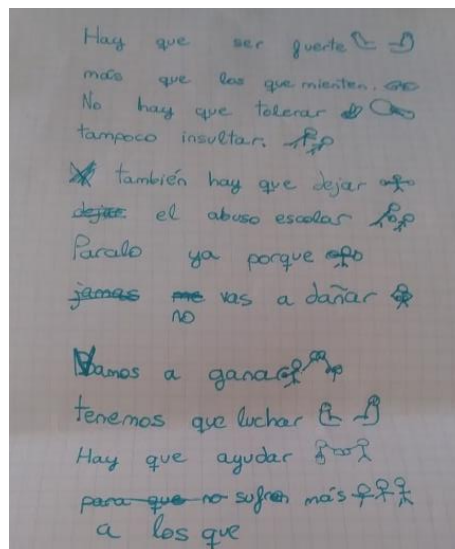 Hay que ser fuerte
más que los que mienten.
No hay que tolerar
tampoco insultar.
también hay que dejar
dejar el abuso escolar
Paralo ya porque
jamas me vas a dañar
no
Vamos a ganar
tenemos que luchar
Hay que ayudar
para que no sufren más
a los que